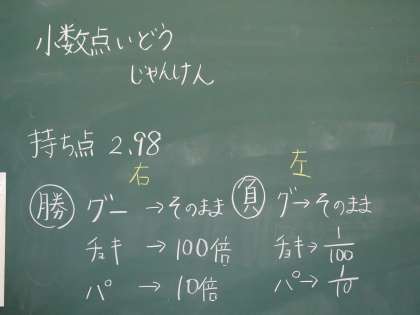 小数点いどう
じゃんけん
持ち点 2.98
右 左
勝 グー →そのまま 負 グー→そのまま
チョキ →100倍 チョキ→ 1/100
パー →10倍 パー→ 1/10